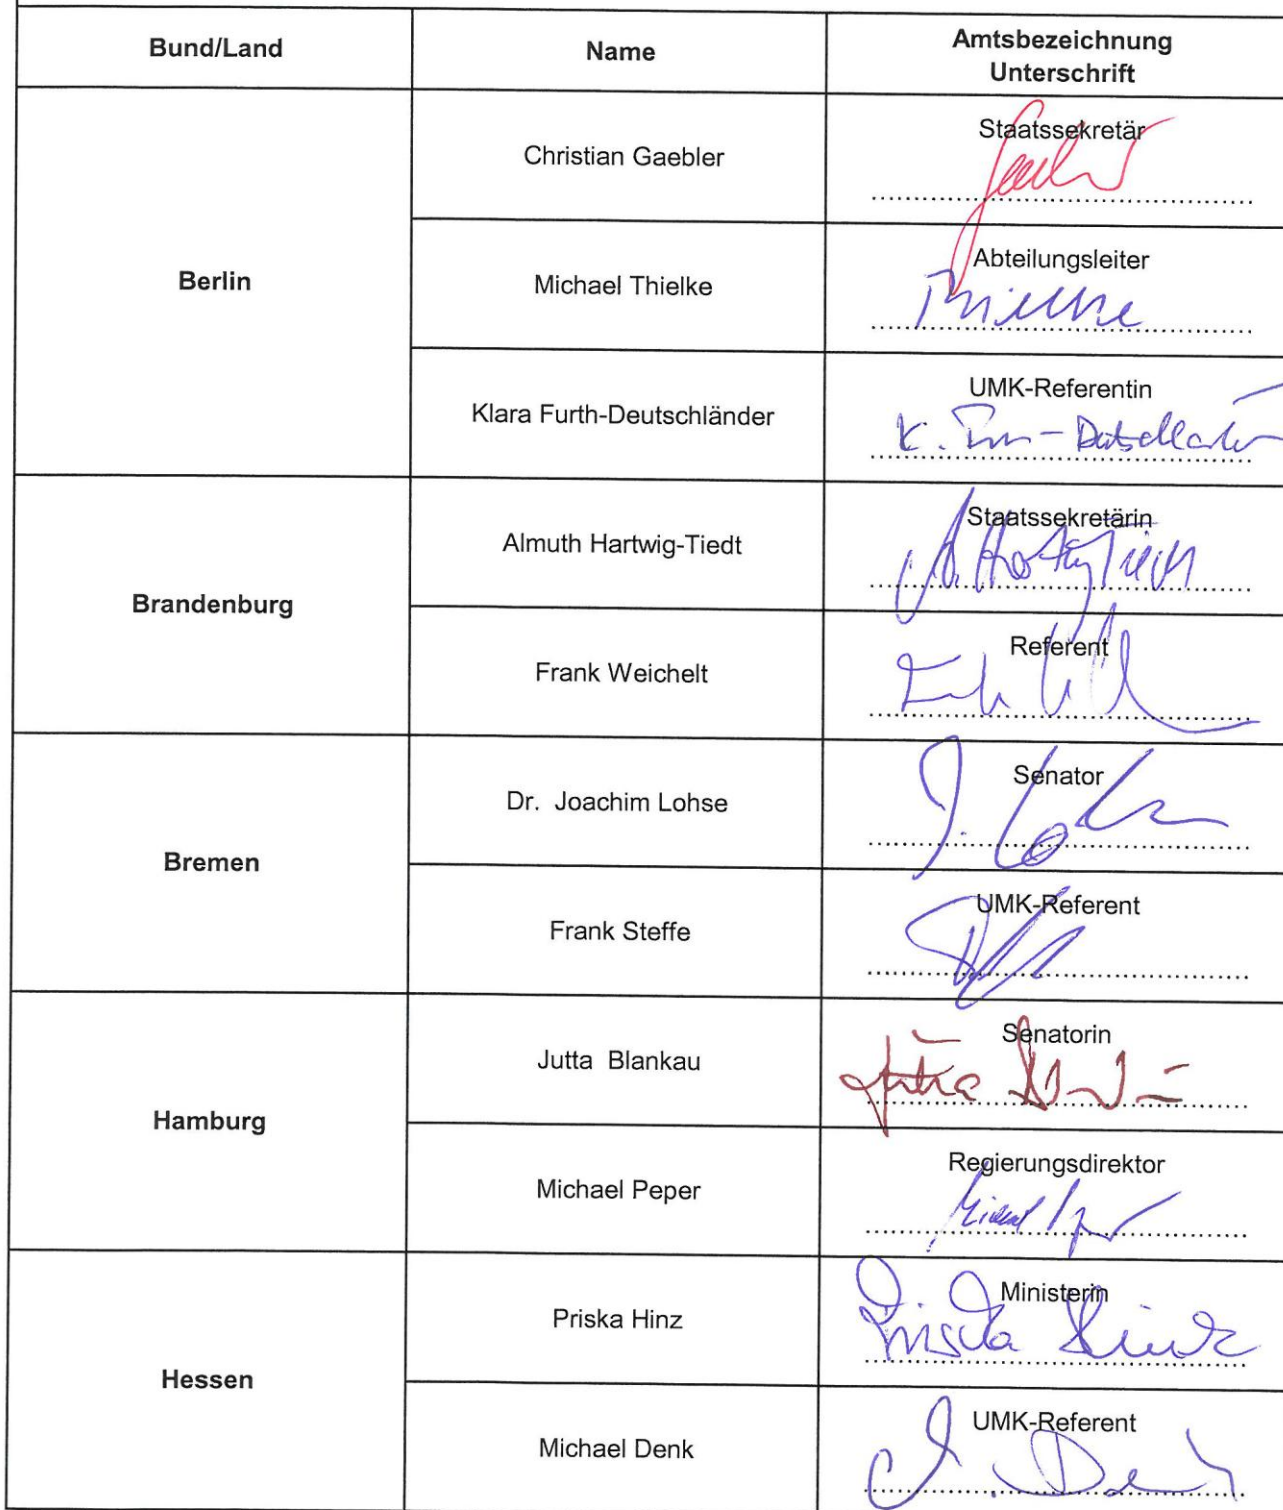 Bund/Land
Name
Amtsbezeichnung
Unterschrift
Berlin
Christian Gaebler
Staatssekretär
Michael Thielke
Abteilungsleiter
Thielke
Klara Furth-Deutschländer
UMK-Referentin
Brandenburg
Almuth Hartwig-Tiedt
Staatssekretärin
Frank Weichelt
Referent
Bremen
Dr. Joachim Lohse
Senator
Frank Steffe
UMK-Referent
Hamburg
Jutta Blankau
Senatorin
Michael Peper
Regierungsdirektor
Hessen
Priska Hinz
Ministerin
Priska Hinz
Michael Denk
UMK-Referent